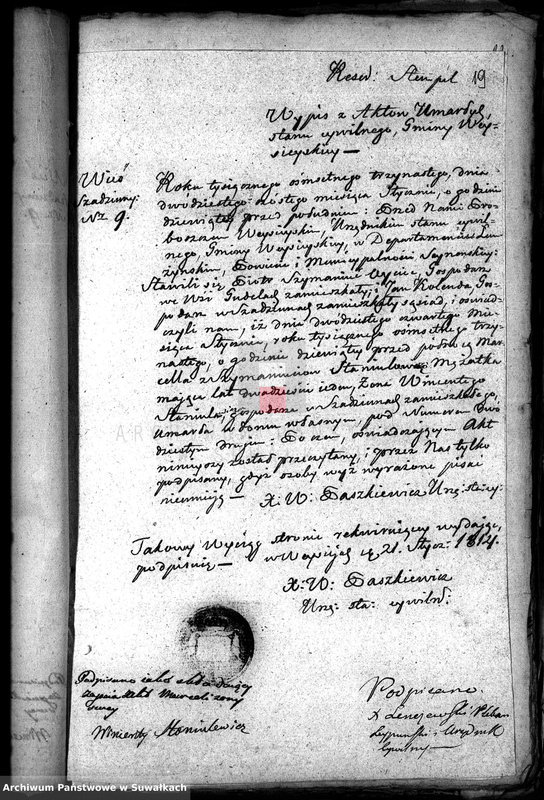 Stempl 19
Wypis z Aktów Umarłych,
stanu cywilnego, Gminy Wey-
sieyskiey —
Wieś
Szadziuny
Nr 9.
Roku tysiącznego ośmsetnego trzynastego, dnia
dwódziestego szóstego miesiąca Stycznia, o godzinie
dziewiątey przed południem: Przed Nami Pro-
boszczem Weysieyskim, Urzędnikiem stanu cywil-
nego, Gminy Weysieyskiey, w Departamencie Łom-
żyńskim, Powiecie i Municypalności Seyneńskiey:
Stawili się Piotr Szymaniuc Oyciec, Gospodarz
we Wsi Gudelach zamieszkały; i Jan Kolenda, Gos-
podarz w Szadziunach zamieszkały sąsiad, i oświad-
czyli nam, iż dnia dwódziestego czwartego mie-
siąca Stycznia, roku tysiącznego ośmsetnego trzy-
nastego, o godzinie dziewiątey przed północą Mar-
cella z Szymaniuców Staniulowa; Mężatka
mająca lat dwadzieścia ieden, Żona Wincentego
Staniula, Gospodarza w Szadziunach zamieszkałego,
umarła w domu własnym, pod Numerem Dwó-
dziestym drugim: Po czem, oświadczaiącym Akt
ninieyszy został przeczytany, i przez Nas tylko
podpisany, gdyż osoby wyż wyrażone pisać
nieumieią — X. W. Paszkiewicz Urzę: st: cy:
Takowy Wyciąg stronie rekwiruiącey wydaiąc,
podpisuię — w Weysieiach 21. Stycz: 1814.
X. W. Paszkiewicz
Urzę: sta: cywiln:
Podpisano
Wincenty Staniulewicz
Podpisano.
X
Pleban
Urzędnik
Cywilny
Archiwum Państwowe w Suwałkach